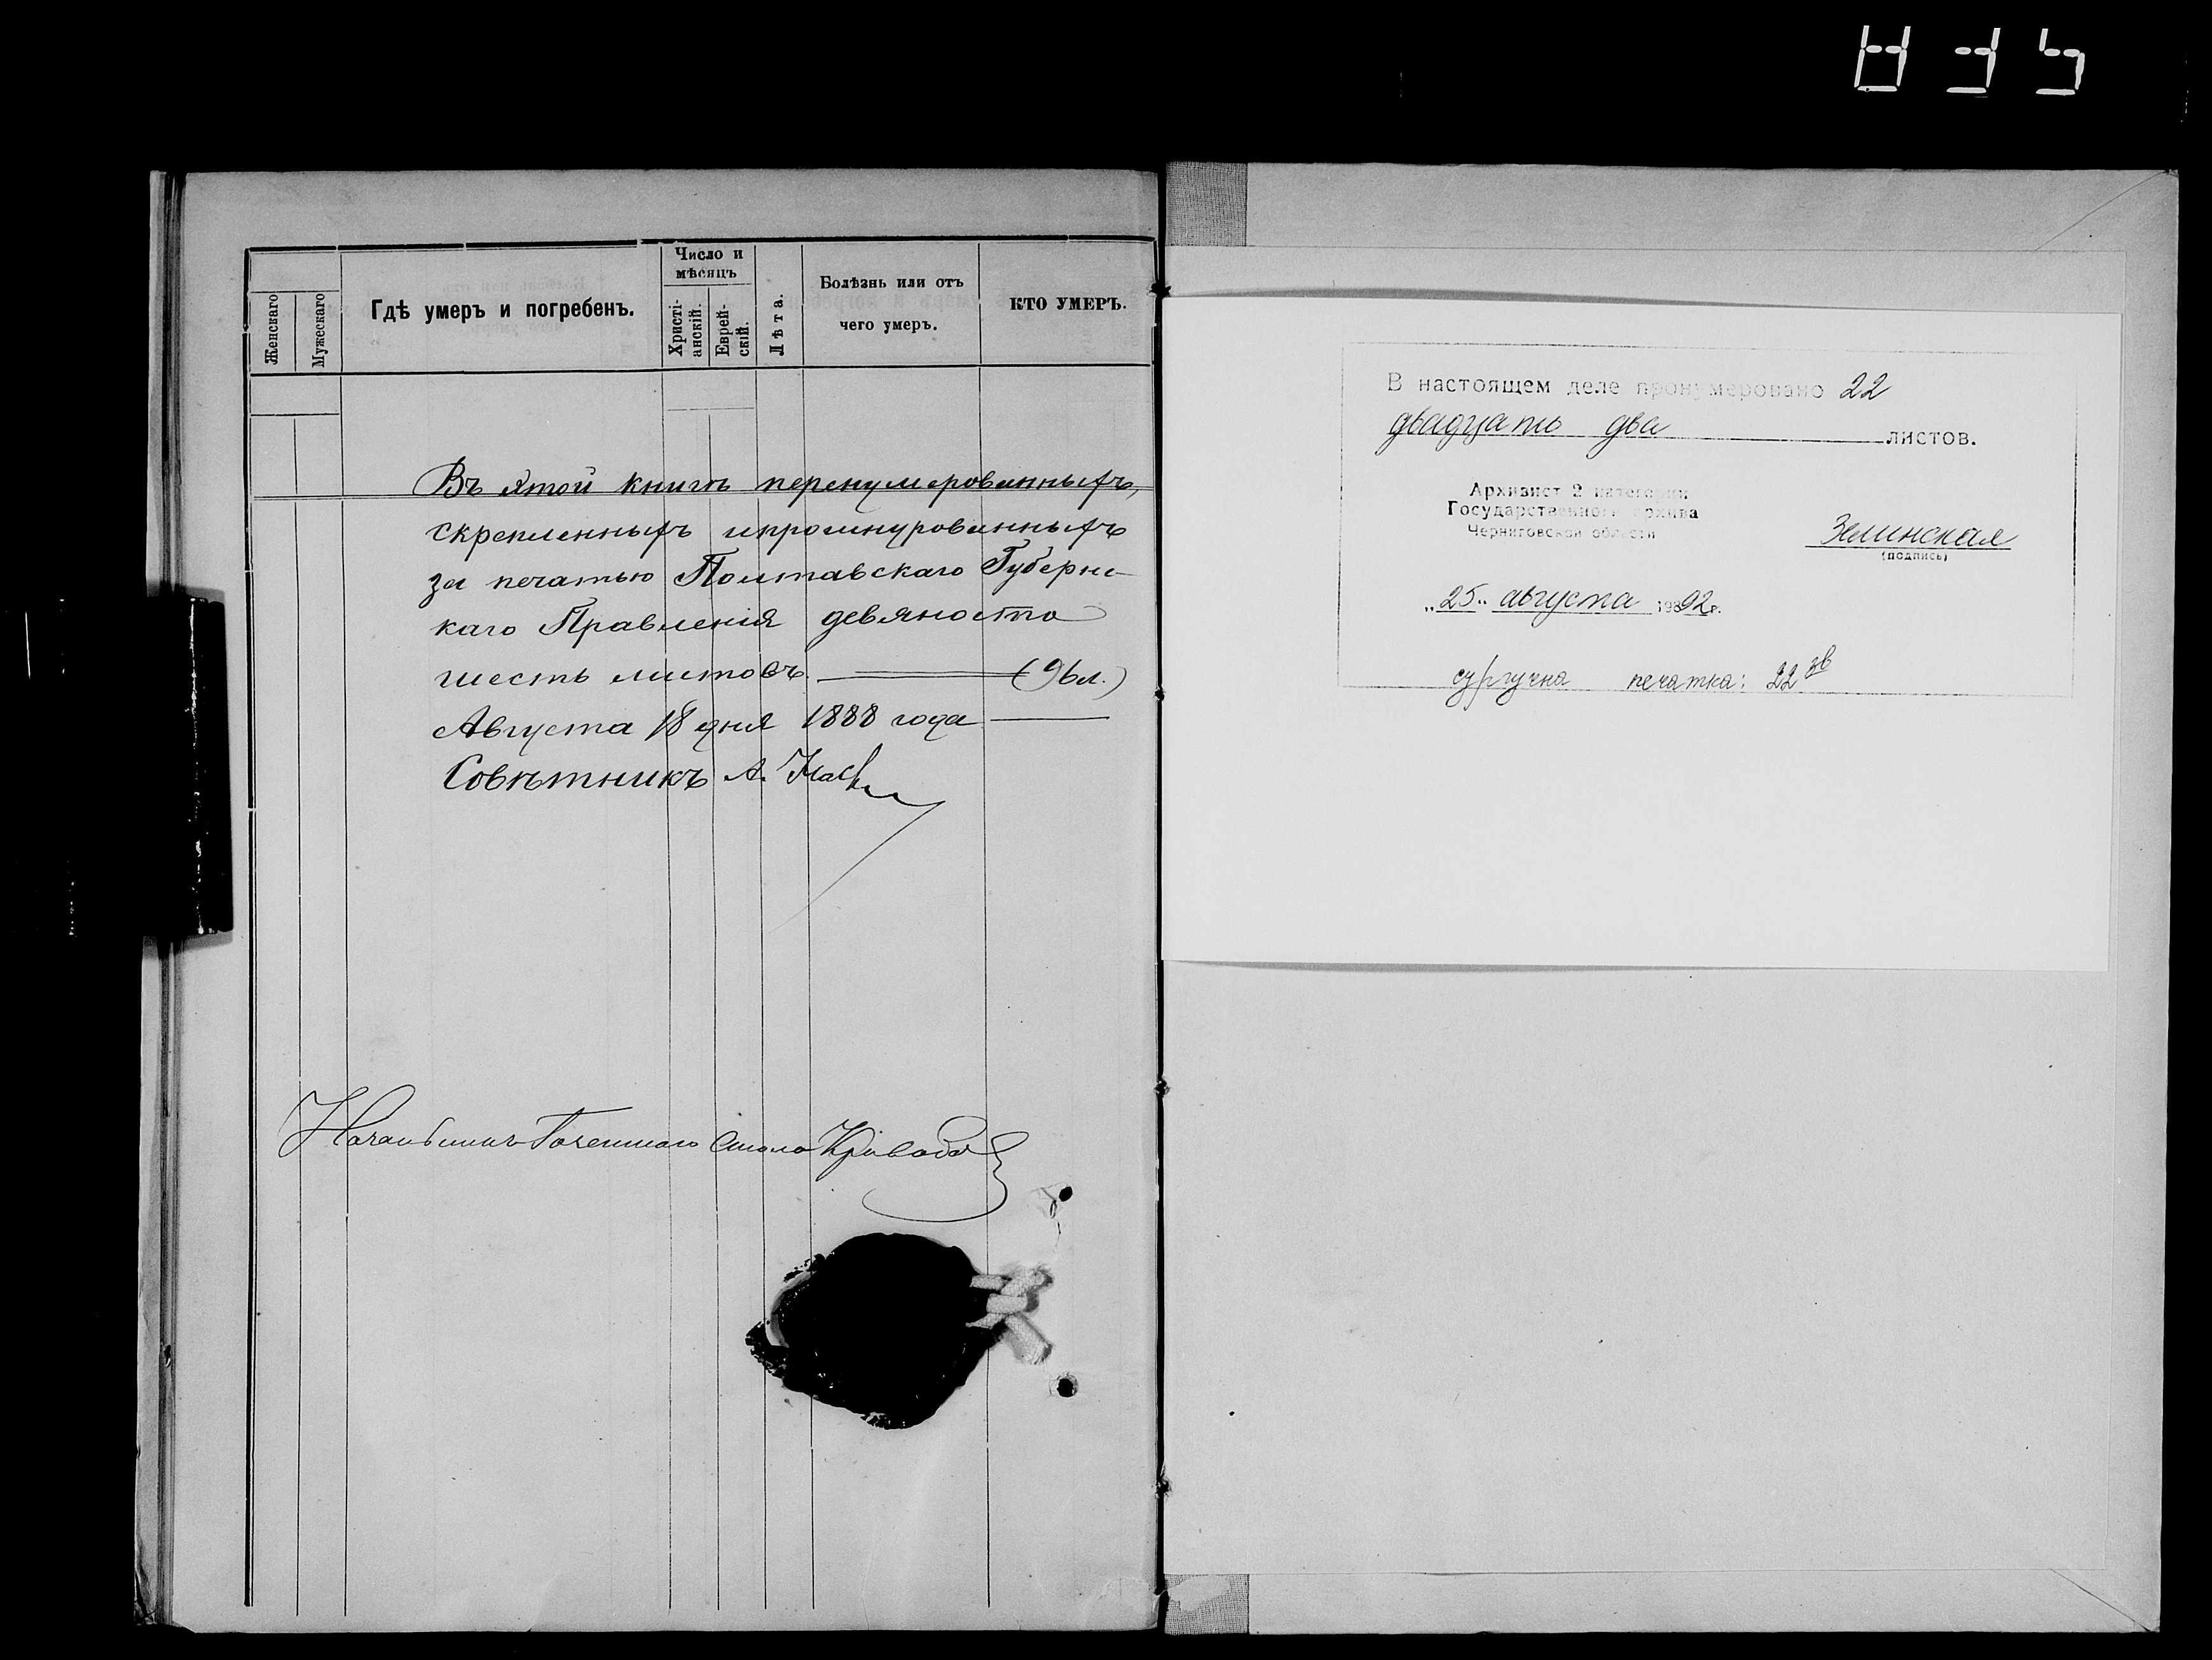 Женскаго
Мужескаго
Гдѣ умеръ и погребенъ.
Число и
мѣсяцъ
Христі-
анскій.
Еврей-
скій.
Лѣта.
Болѣзнь или отъ
чего умеръ.
КТО УМЕРЪ.
Въ этой книгѣ перенумерованныхъ,
скрепленныхъ ипрошнурованныхъ
за печатью Полтавскаго Губернс-
каго Правленія девяносто
шесть листовъ. (96л.)
Августа 18 дня 1888 года
Совѣтникъ А.
Стола
В настоящем деле пронумеровано 22
двадцать два листов.
Архивист 2 категории
Государственного архива
Черниговской области
Зелинская
(подпись)
„25„ августа 1992г.
сургучна печатка: 22 зв